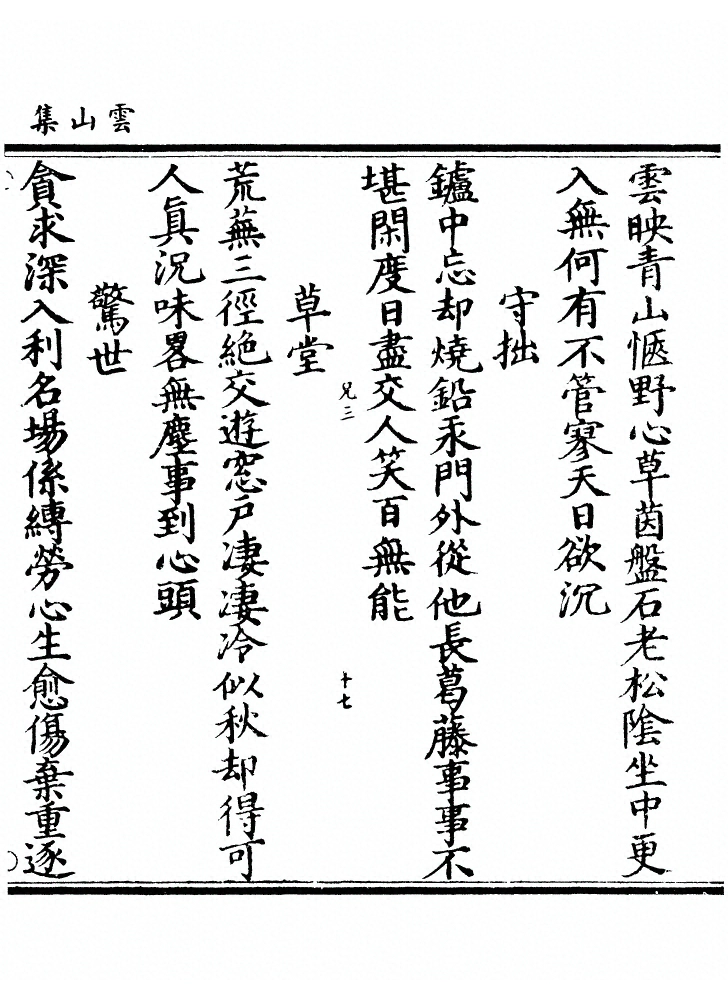 雲山集
雲映青山愜野心草茵盤石老松陰坐中更
入無何有不管寥天日欲沉
守拙
鑪中忘却燒鉛汞門外從他長葛藤事事不
堪閑度日盡交人笑百無能
兄三
十七
草堂
荒蕪三徑絶交遊窓戶凄凄冷似秋却得可
人眞況味畧無塵事到心頭
驚世
貪求深入利名場係縛勞心生愈傷棄重逐